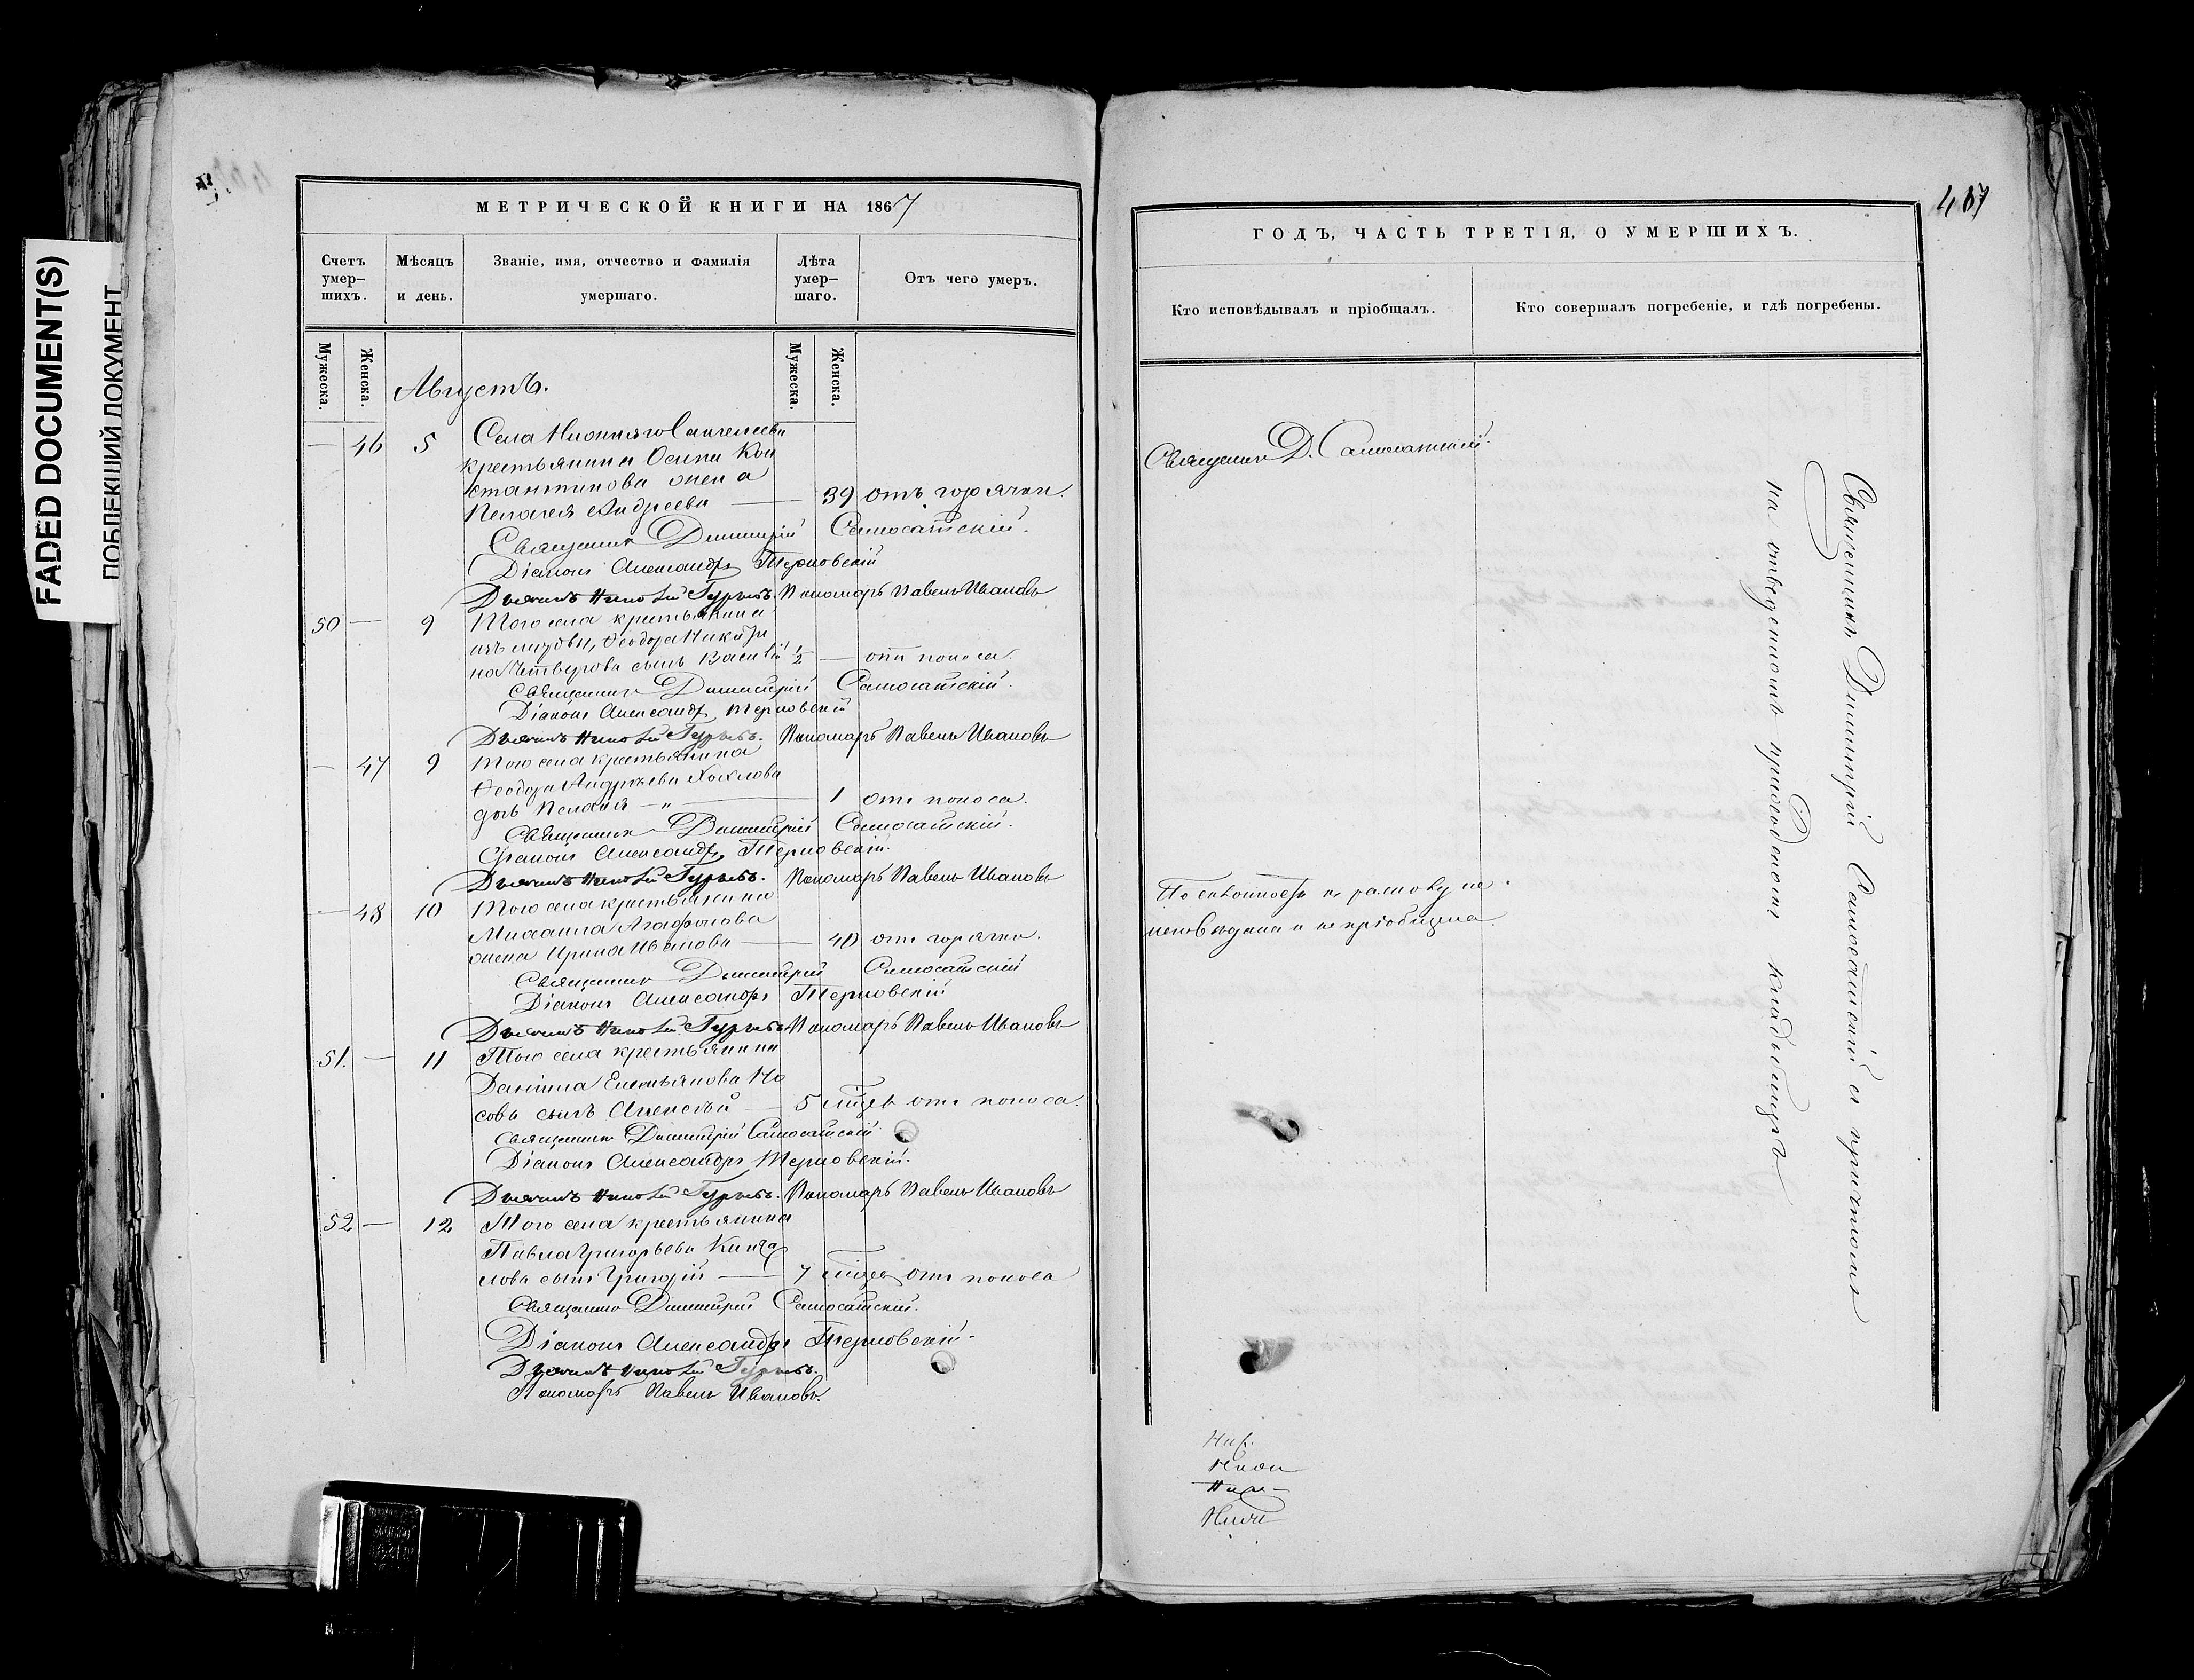 FADED DOCUMENT(S)
ПОБЛЕКШИЙ ДОКУМЕНТ
МЕТРИЧЕСКОЙ КНИГИ НА 1867
Счетъ умер–шихъ.
Мѣсяцъ и день.
Званіе, имя, отчество и фамилія умершаго.
Лѣта умер–шаго.
Отъ чего умеръ.
Мужеска.
Женска.
Мужеска.
Женска.
Августъ.
— 46 5 Села
крестьянина Осипа Кон
стантинова жена
Пелагея Андреева — 39 отъ горячки.
Священникъ Димитрій Самосатскій.
Діаконъ Александръ Терновскій
Дьячекъ Гурьевъ. Пономарь Павелъ Ивановъ
50 — 9 Того села крестьянина
Ѳеодора Никити
на Четверова сынъ Василій 1/2 — отъ поноса.
Священникъ Димитрій Самосатскій.
Діаконъ Александръ Терновскій
Дьячекъ Гурьевъ. Пономарь Павелъ Ивановъ
— 47 9 Того села крестьянина
Ѳеодора Андреева Хохлова
дочь Пелагія — „ — 1 отъ поноса.
Священникъ Димитрій Самосатскій.
Діаконъ Александръ Терновскій.
Дьячекъ Гурьевъ. Пономарь Павелъ Ивановъ
— 48 10 Того села крестьянина
Михаила Агафонова
жена Ирина Иванова — 40 отъ горячки.
Священникъ Димитрій Самосатскій
Діаконъ Александръ Терновскій
Дьячекъ Гурьевъ Пономарь Павелъ Ивановъ
51. — 11 Того села крестьянина
Даніила Емельянова Но
сова сынъ Алексѣй — 5 отъ поноса.
Священникъ Димитрій Самосатскій.
Діаконъ Александръ Терновскій.
Дьячекъ Гурьевъ. Пономарь Павелъ Ивановъ
52 — 12 Того села крестьянина
Павла Григорьева
лова сынъ Григорій — 7 отъ поноса
Священникъ Димитрій Самосатскій.
Діаконъ Александръ Терновскій.
Дьячекъ Гурьевъ.
Пономарь Павелъ Ивановъ.
407
ГОДЪ, ЧАСТЬ ТРЕТІЯ, О УМЕРШИХЪ.
Кто исповѣдывалъ и пріобщалъ.
Кто совершалъ погребеніе, и гдѣ погребены.
Священникъ Д. Самосатскій.
не
исповѣдана и не пріобщена.
Священникъ Димитрій Самосатскій съ причтомъ
на отведенномъ приходскомъ кладбищѣ